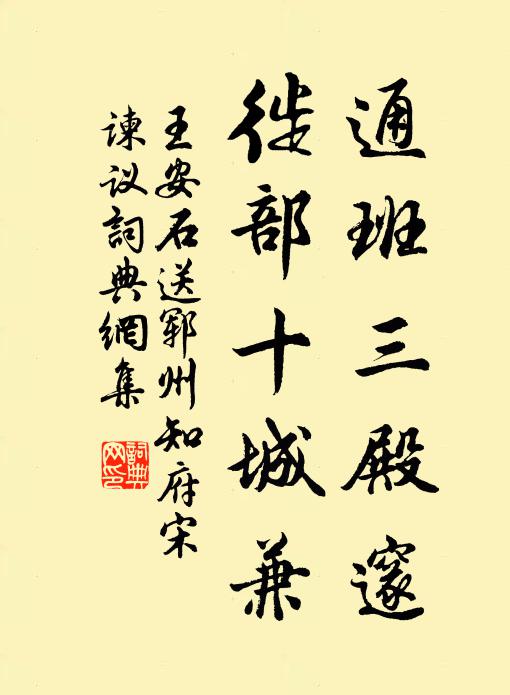 通班三殿邃
徙部十城兼
王安石送郓州知府宋
谏议词典網集
詞典
网印